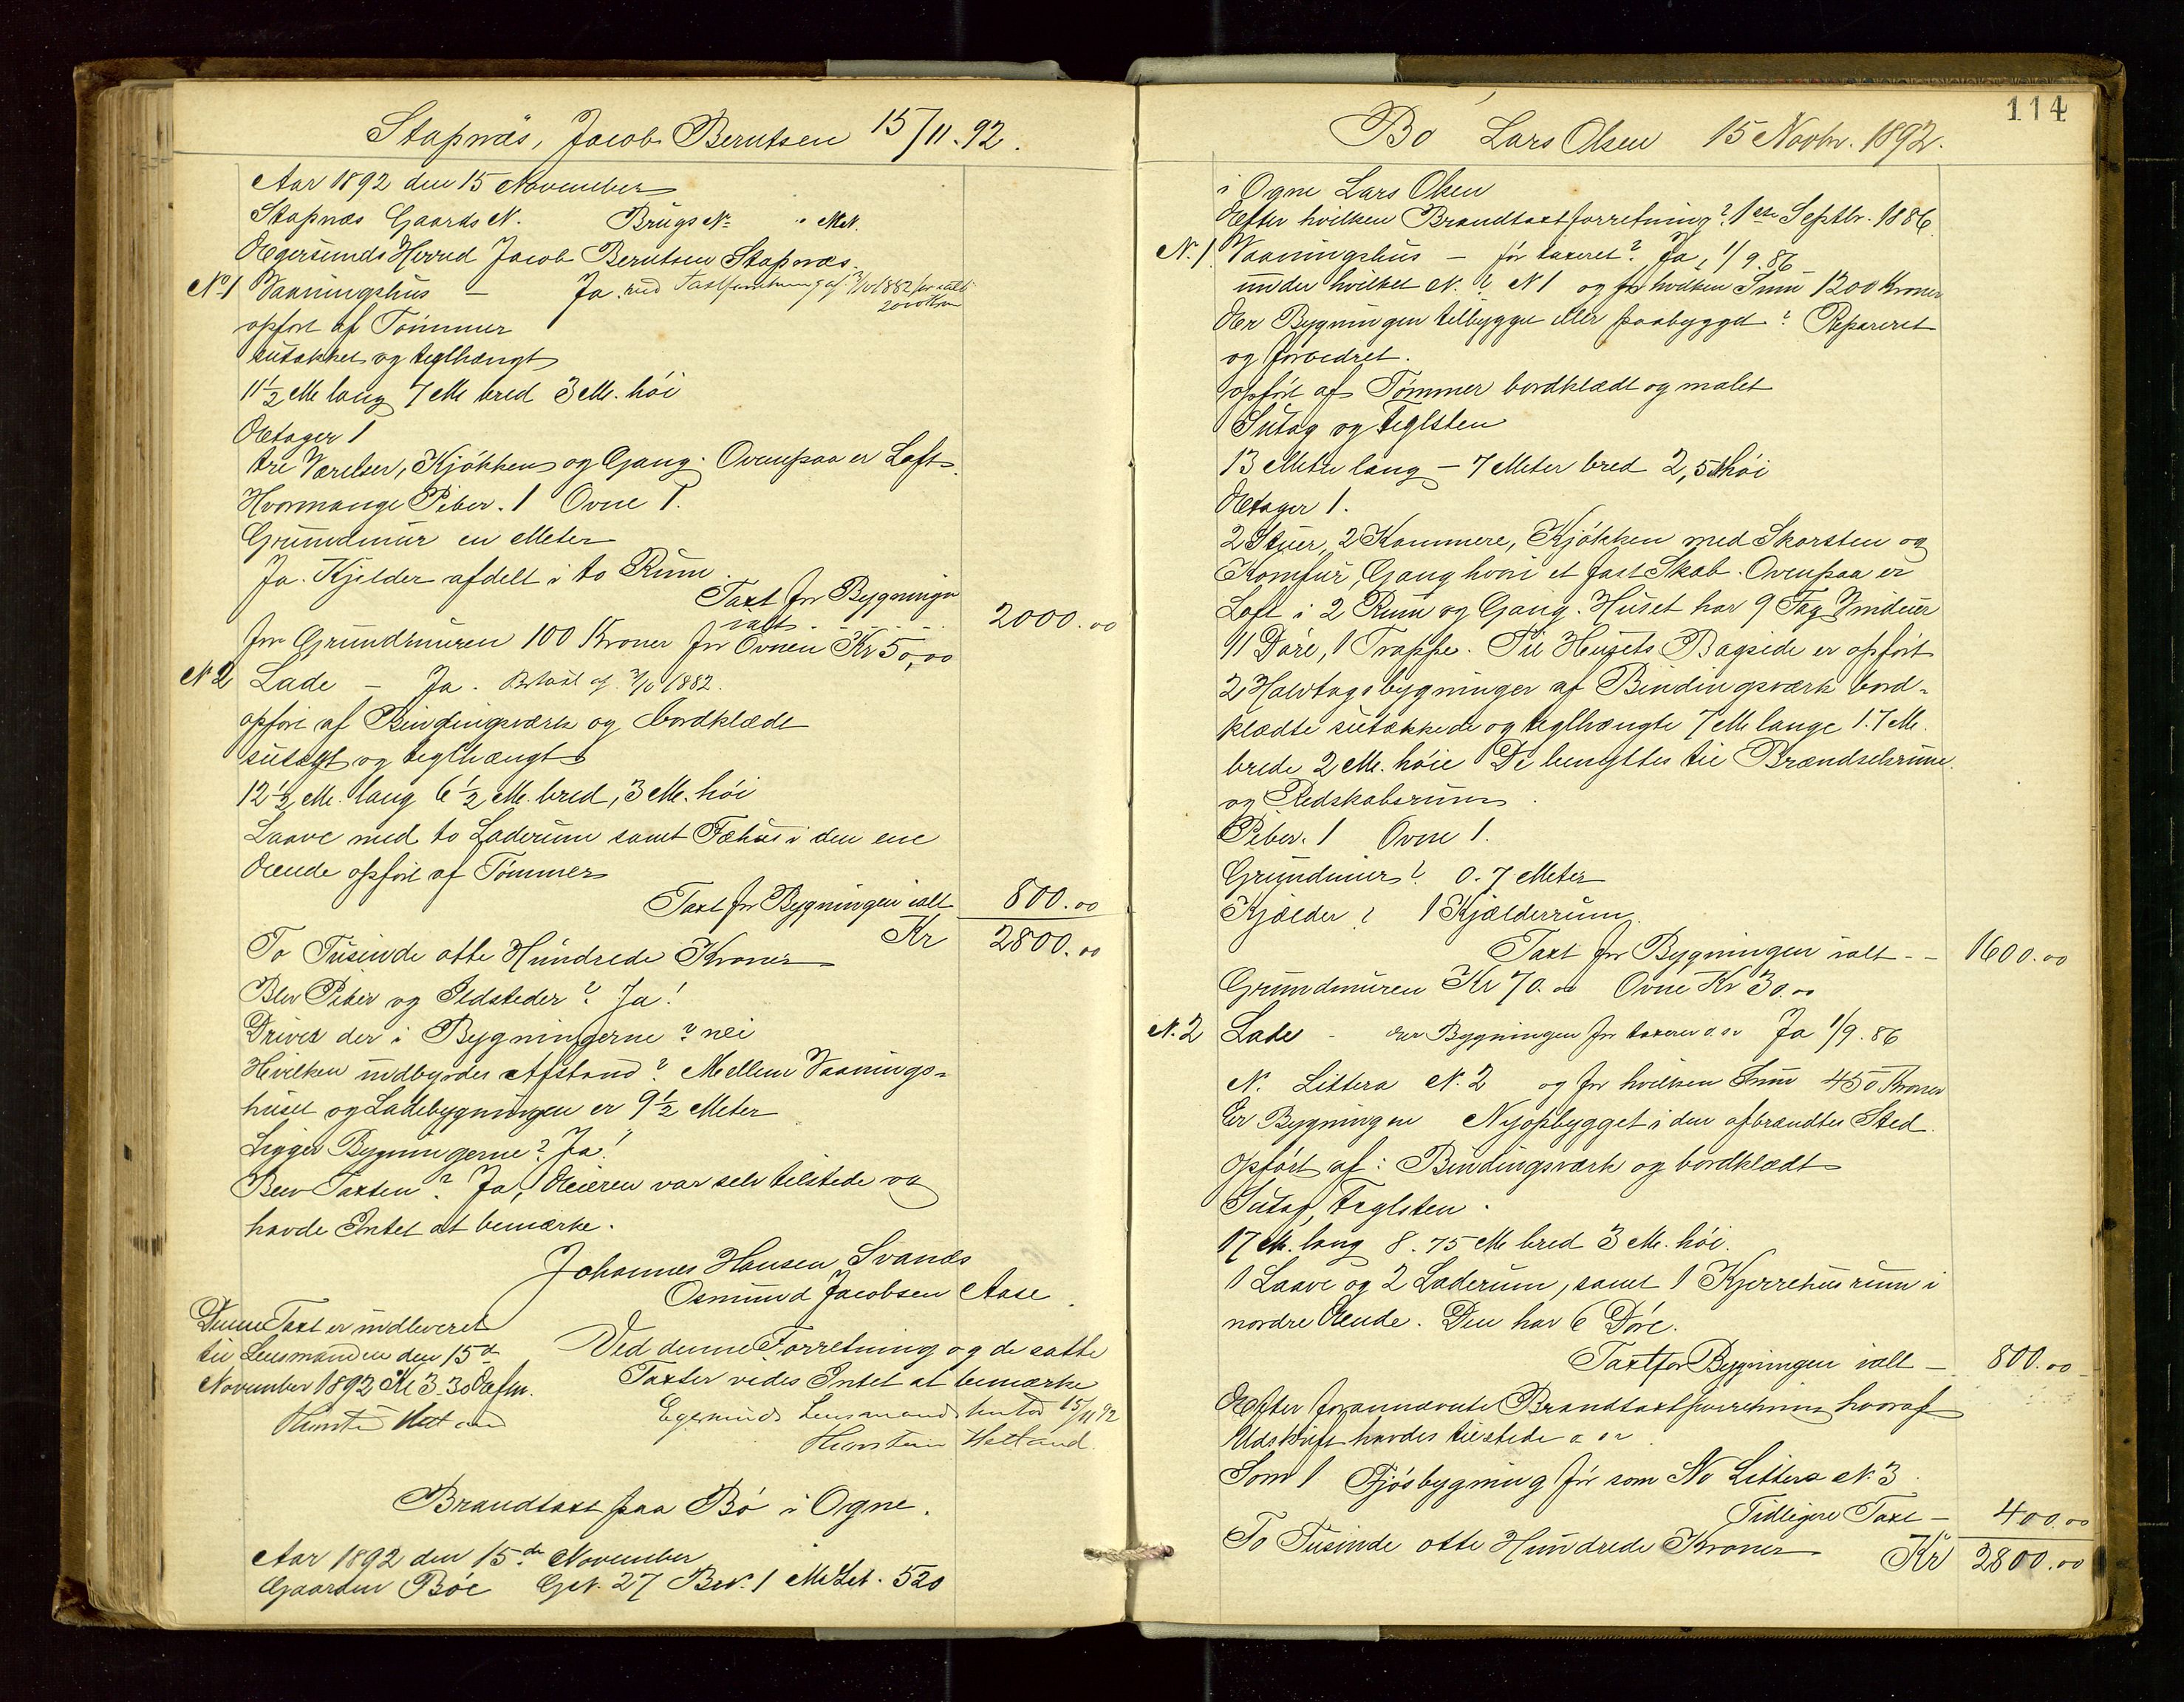 Stapnæs, Jacob Berntsen 15/11.92.
Aar 1892 den 15 November
Stapnæs Gaards N. Brugs No " M.N.
Ægersunds Herred Jacob Berntsen Stapnæs.
No 1 Vaaningshus – Ja. ved Taxtforretning af 1882 for
2000 Kroner
opført af Tømmer
sutækket og teglhængt
11½ M lang 7 M bred 3 M. høi
Ætager 1
tre Værelser, Kjøkken og Gang. Ovenpaa er Loft.
Hvormange Piber. 1 Ovne 1.
Grundmur en Meter
Ja. Kjelder afdelt i to Rum.
Taxt for Bygningen
ialt . . . . . . 2000.00
for Grundmuren 100 Kroner for Ovnen Kr 50,00
N 2 Lade – Ja. 1882.
opført af Bindingsværk og bordklædt
sutagt og teglhængt
12½ M. lang 6½ M. bred, 3 M. høi
Laave med to Laderum samt Fæhus i den ene
Ænde opført af Tømmer
Taxt for Bygningen ialt 800.00
Kr 2800.00
To Tusinde otte Hundrede Kroner
Blev Piber og Ildsteder? Ja!
Drives der i Bygningerne? nei
Hvilken indbyrdes Afstand? Mellem Vaanings-
huset og Ladebygningen er 9½ Meter
Ligger Bygningerne? Ja!
Blev Taxten? Ja, Æieren var selv tilstede og
havde Intet at bemærke.
Johannes Hansen Svanæs
Osmund Jacobsen Aase
Denne Taxt er indleveret
til Lensmanden den 15de
November 1892 Kl 3.30 Efm.
Ved denne Forretning og de satte
Taxter vides Intet at bemærke
Egersunds Lensmandskontor 15/11 92
Thorstein Hetland.
Brandtaxt paa Bø i Ogne.
Aar 1892 den 15de November
Gaarden Bøe GN. 27 BrN. 1 M.Let. 520
114
Bø Lars Olsen 15 Novbr. 1892.
i Ogne Lars Olsen
Efter hvilken Brandtaxtforretning? 1ste Septbr. 1886
N. 1 Vaaningshus – før taxeret? Ja, 1/9.86
under hvilket N.? N 1 og for hvilken Sum 1200 Kroner
Er Bygningen tilbygget eller paabygget? Repareret
og forbedret.
opført af Tømmer bordklædt og malet
Sutag og teglsten
13 Meter lang – 7 Meter bred 2,5 M høi
Ætager 1.
2 Stuer, 2 Kammere, Kjøkken med Skorsten og
Komfur, Gang hvori et fast Skab. Ovenpaa er
Loft i 2 Rum og Gang. Huset har 9 Fag Vinduer
11 Døre, 1 Trappe. Til Husets Bagside er opført
2 Halvtagsbygninger af Bindingsværk bord-
klædte sutækkede og teglhængte 7 M lange 1.7 M.
brede 2 M. høie De benyttes til Brændselsrum
og Redskabsrum.
Piber. 1 Ovne 1.
Grundmur? 0.7 Meter
Kjælder? 1 Kjælderrum.
Taxt for Bygningen ialt – – 1600.00
Grundmuren Kr 70.00 Ovne Kr 30.00
N. 2 Lade – Er Bygningen før taxeret o. sv Ja 1/9.86
N. Littera N. 2 og for hvilken Sum 450 Kroner
Er Bygningen Nyopbygget i den afbrændtes Sted.
opført af: Bindingsværk og bordklædt
Sutag, teglsten.
17 M. lang 8.75 M bred 3 M. høi.
1 Laave og 2 Laderum, samt 1 Kjerrehusrum i
nordre Ænde. Den har 6 Døre.
Taxt for Bygningen ialt – 800.00
Efter forannævnte Brandtaxtforretning hvoraf
Udskrift havdes tilstede
Som 1 Fjøsbygning før som No Littera N. 3.
Tidligere Taxt – 400.00
To Tusinde otte Hundrede Kroner Kr 2800.00